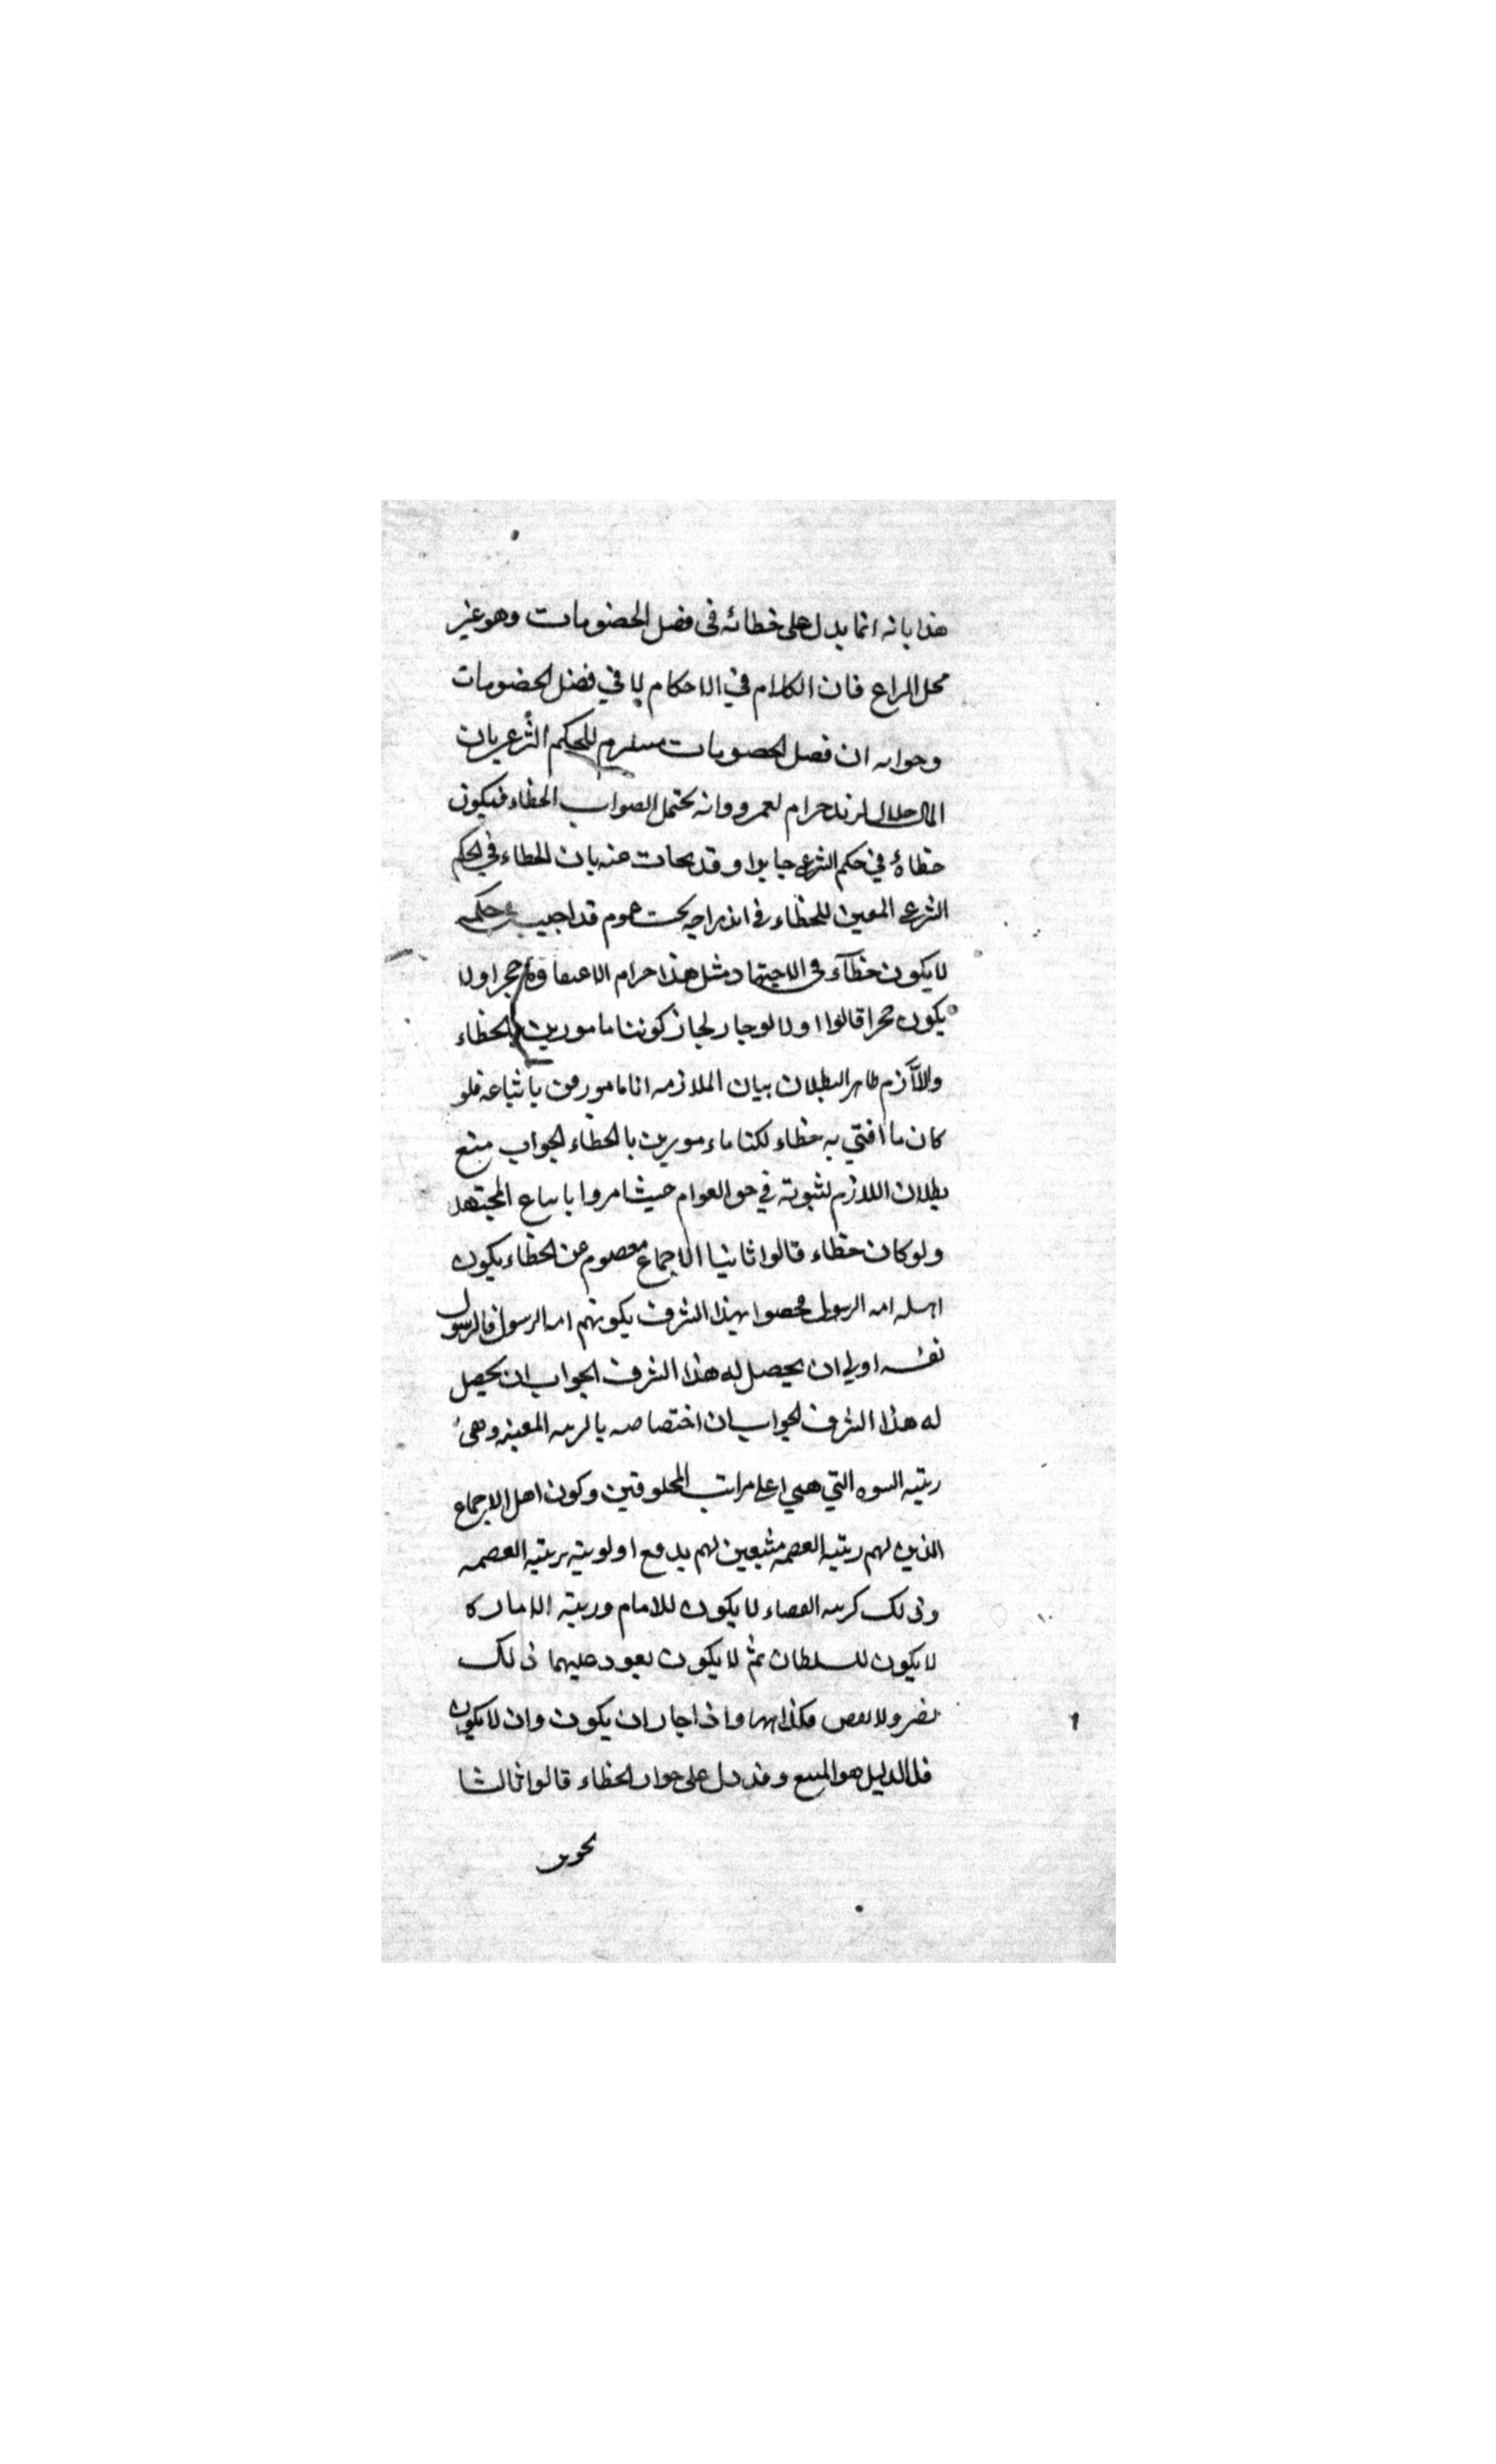 هذا بانه انما يدل على خطائه في فصل الخصومات وهو غير
محل النزاع فان الكلام في الاحكام لا في فصل الخصومات
وجوابه ان فصل الخصومات مستلزم للحكم الشرعي بان
المال حلال لزيد حرام لعمرو وانه يحتمل الصواب الخطاء فيكون
خطاؤه في حكم الشرعي جايزا وقد يجاب عنه بان الخطاء في الحكم
الشرعي المعين للخطاء في اندراجه تحت عموم قد اجيب حكمه
لا يكون خطآء في الاجتهاد مثل هذا حرام لاعتقاده خمرا ولا
يكون خمرا قالوا اولا لو جاز لجاز كوننا مامورين بالخطاء
واللازم ظاهر البطلان بيان الملازمه انا مامورون باتباعه فلو
كان ما افتي به خطاء لكنا ماءمورين بالخطاء الجواب منع
بطلان اللازم لثبوته في حق العوام حيث امروا باتباع المجتهد
ولو كان خطاء قالوا ثانيا الاجماع معصوم عن الخطاء يكون
اهله امه الرسول مخصوا بهذا الشرف بكونهم امه الرسول فالرسول
نفسه اولي ان يحصل له هذا الشرف الجواب ان يحصل
له هذا الشرف الجواب ان اختصاصه بالرتبه المعينه وهي
رتبه النبوه التي هي اعلى مراتب المخلوقين وكون اهل الاجماع
الذين لهم رتبه العصمه متبعين لهم يدفع اولويته برتبه العصمه
وذلك كرتبه القضاء لا يكون للامام ورتبه الاماره
لا يكون للسلطان ثم لا يكون يعود عليهما ذلك
بضر ولا نقص فكذا هنا واذا جاز ان يكون وان لا يكون
فالدليل هو المتبع وقد دل على جواز الخطاء قالوا ثالثا
تجويز